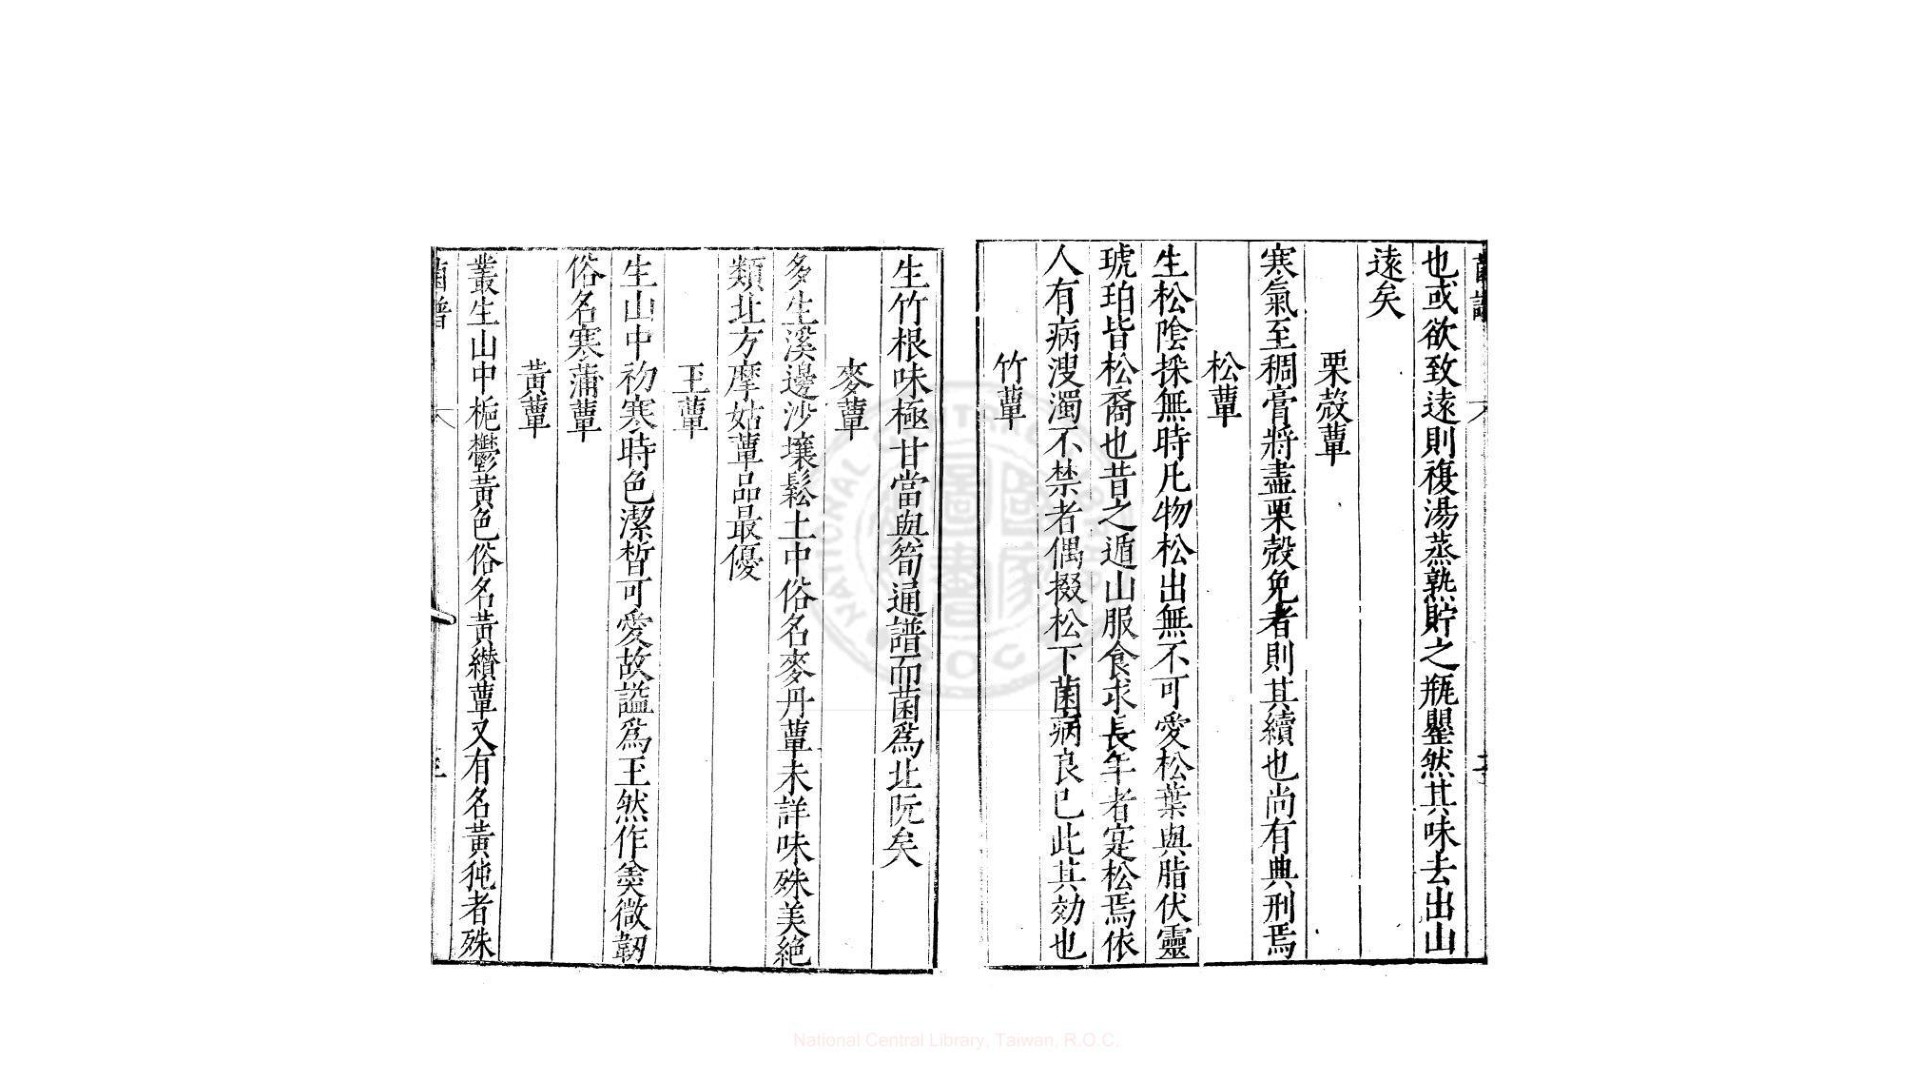 也或欲致遠則複湯蒸熟貯之瓶罌然其味去出山
遠矣
栗殼蕈
寒氣至稠膏將盡栗殼免者則其續也尚有典刑焉
松蕈
生松陰採無時凡物松出無不可愛松葉與脂伏靈
琥珀皆松裔也昔之遁山服食求長年者寔松焉依
人有病溲濁不禁者偶掇松下菌病良已此其効也
竹蕈
生竹根味極甘當與筍通譜而菌爲北阮矣
麥蕈
多生溪邊沙壤鬆土中俗名麥丹蕈未詳味殊美絶
類北方摩姑蕈品最優
玉蕈
生山中初寒時色潔皙可愛故謚爲玉然作羹微韌
俗名寒蒲蕈
黃蕈
叢生山中梔鬱黃色俗名黃纘蕈又有名黃㹠者殊
菌譜
National Central Library, Taiwan, R.O.C.